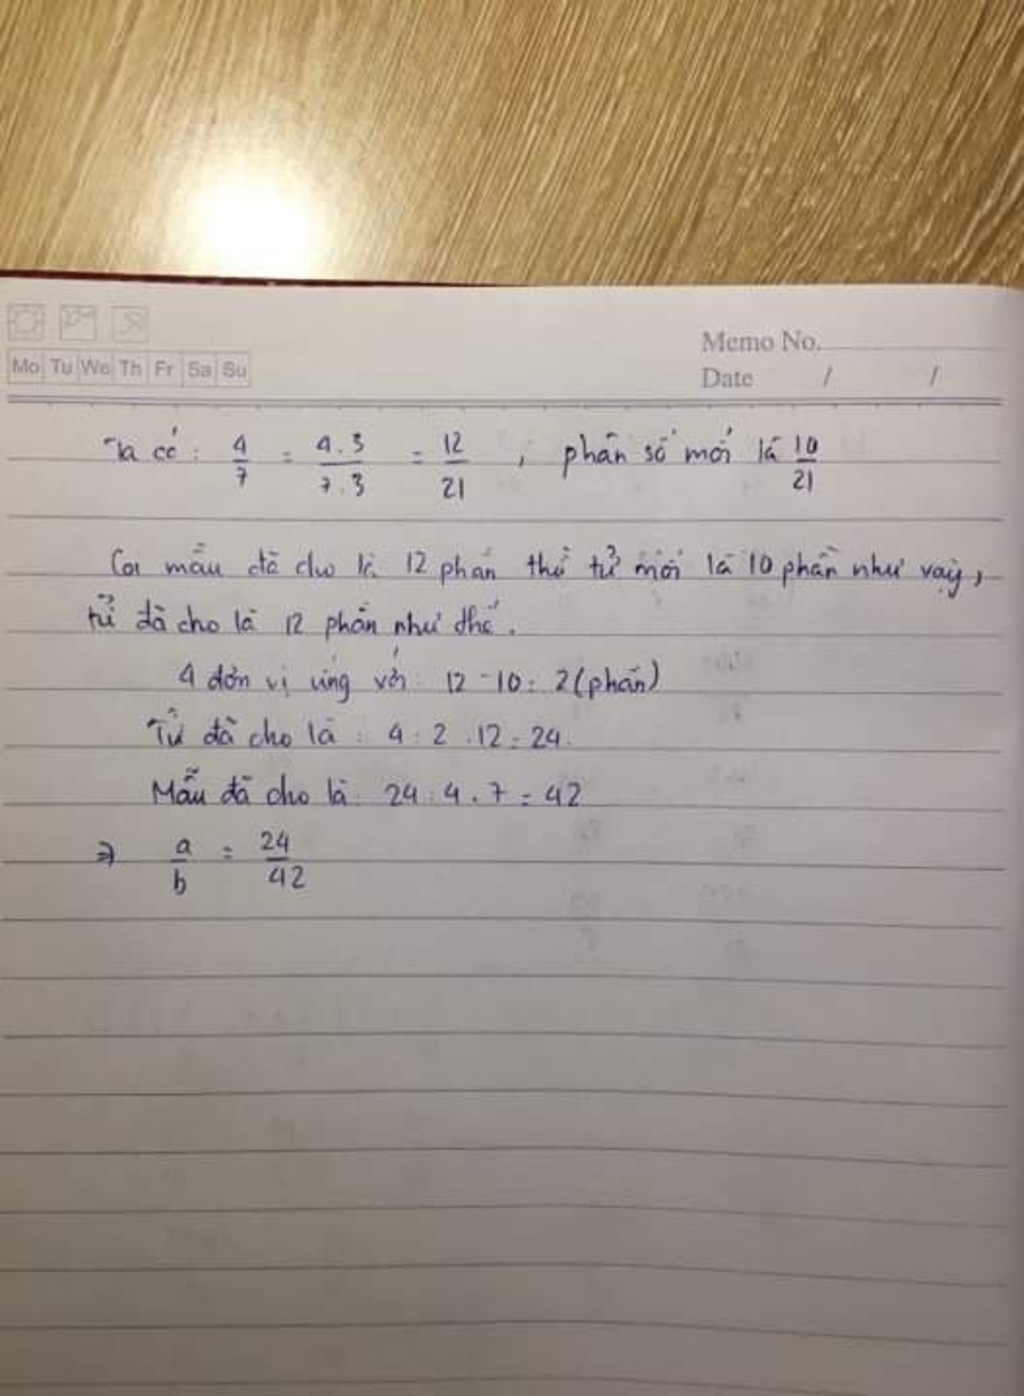 Mo Tu We Th Fr Sa Su
Memo No.
Date / /
Ta có : 4/7 = 4.3/7.3 = 12/21 , phân số mới là 10/21
Coi mẫu đã cho là 12 phần thì tử mới là 10 phần như vậy,
tử đã cho là 12 phần như thế.
4 đơn vị ứng với 12 - 10 = 2 (phần)
Tử đã cho là : 4 : 2 . 12 = 24.
Mẫu đã cho là : 24 : 4 . 7 = 42
⇒ a/b = 24/42